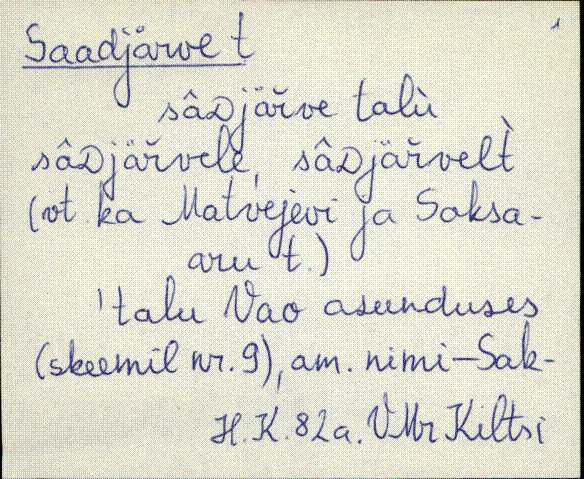 1
Saadjärve t
sâDjäŕve talù
sâDjäŕvele, sâDjäŕvelT̀
(vt ka Matvejevi ja Saksa-
aru t.)
'talu Vao asunduses
(skeemil nr. 9), am. nimi–Sak-
H.K. 82a. VMr Kiltsi